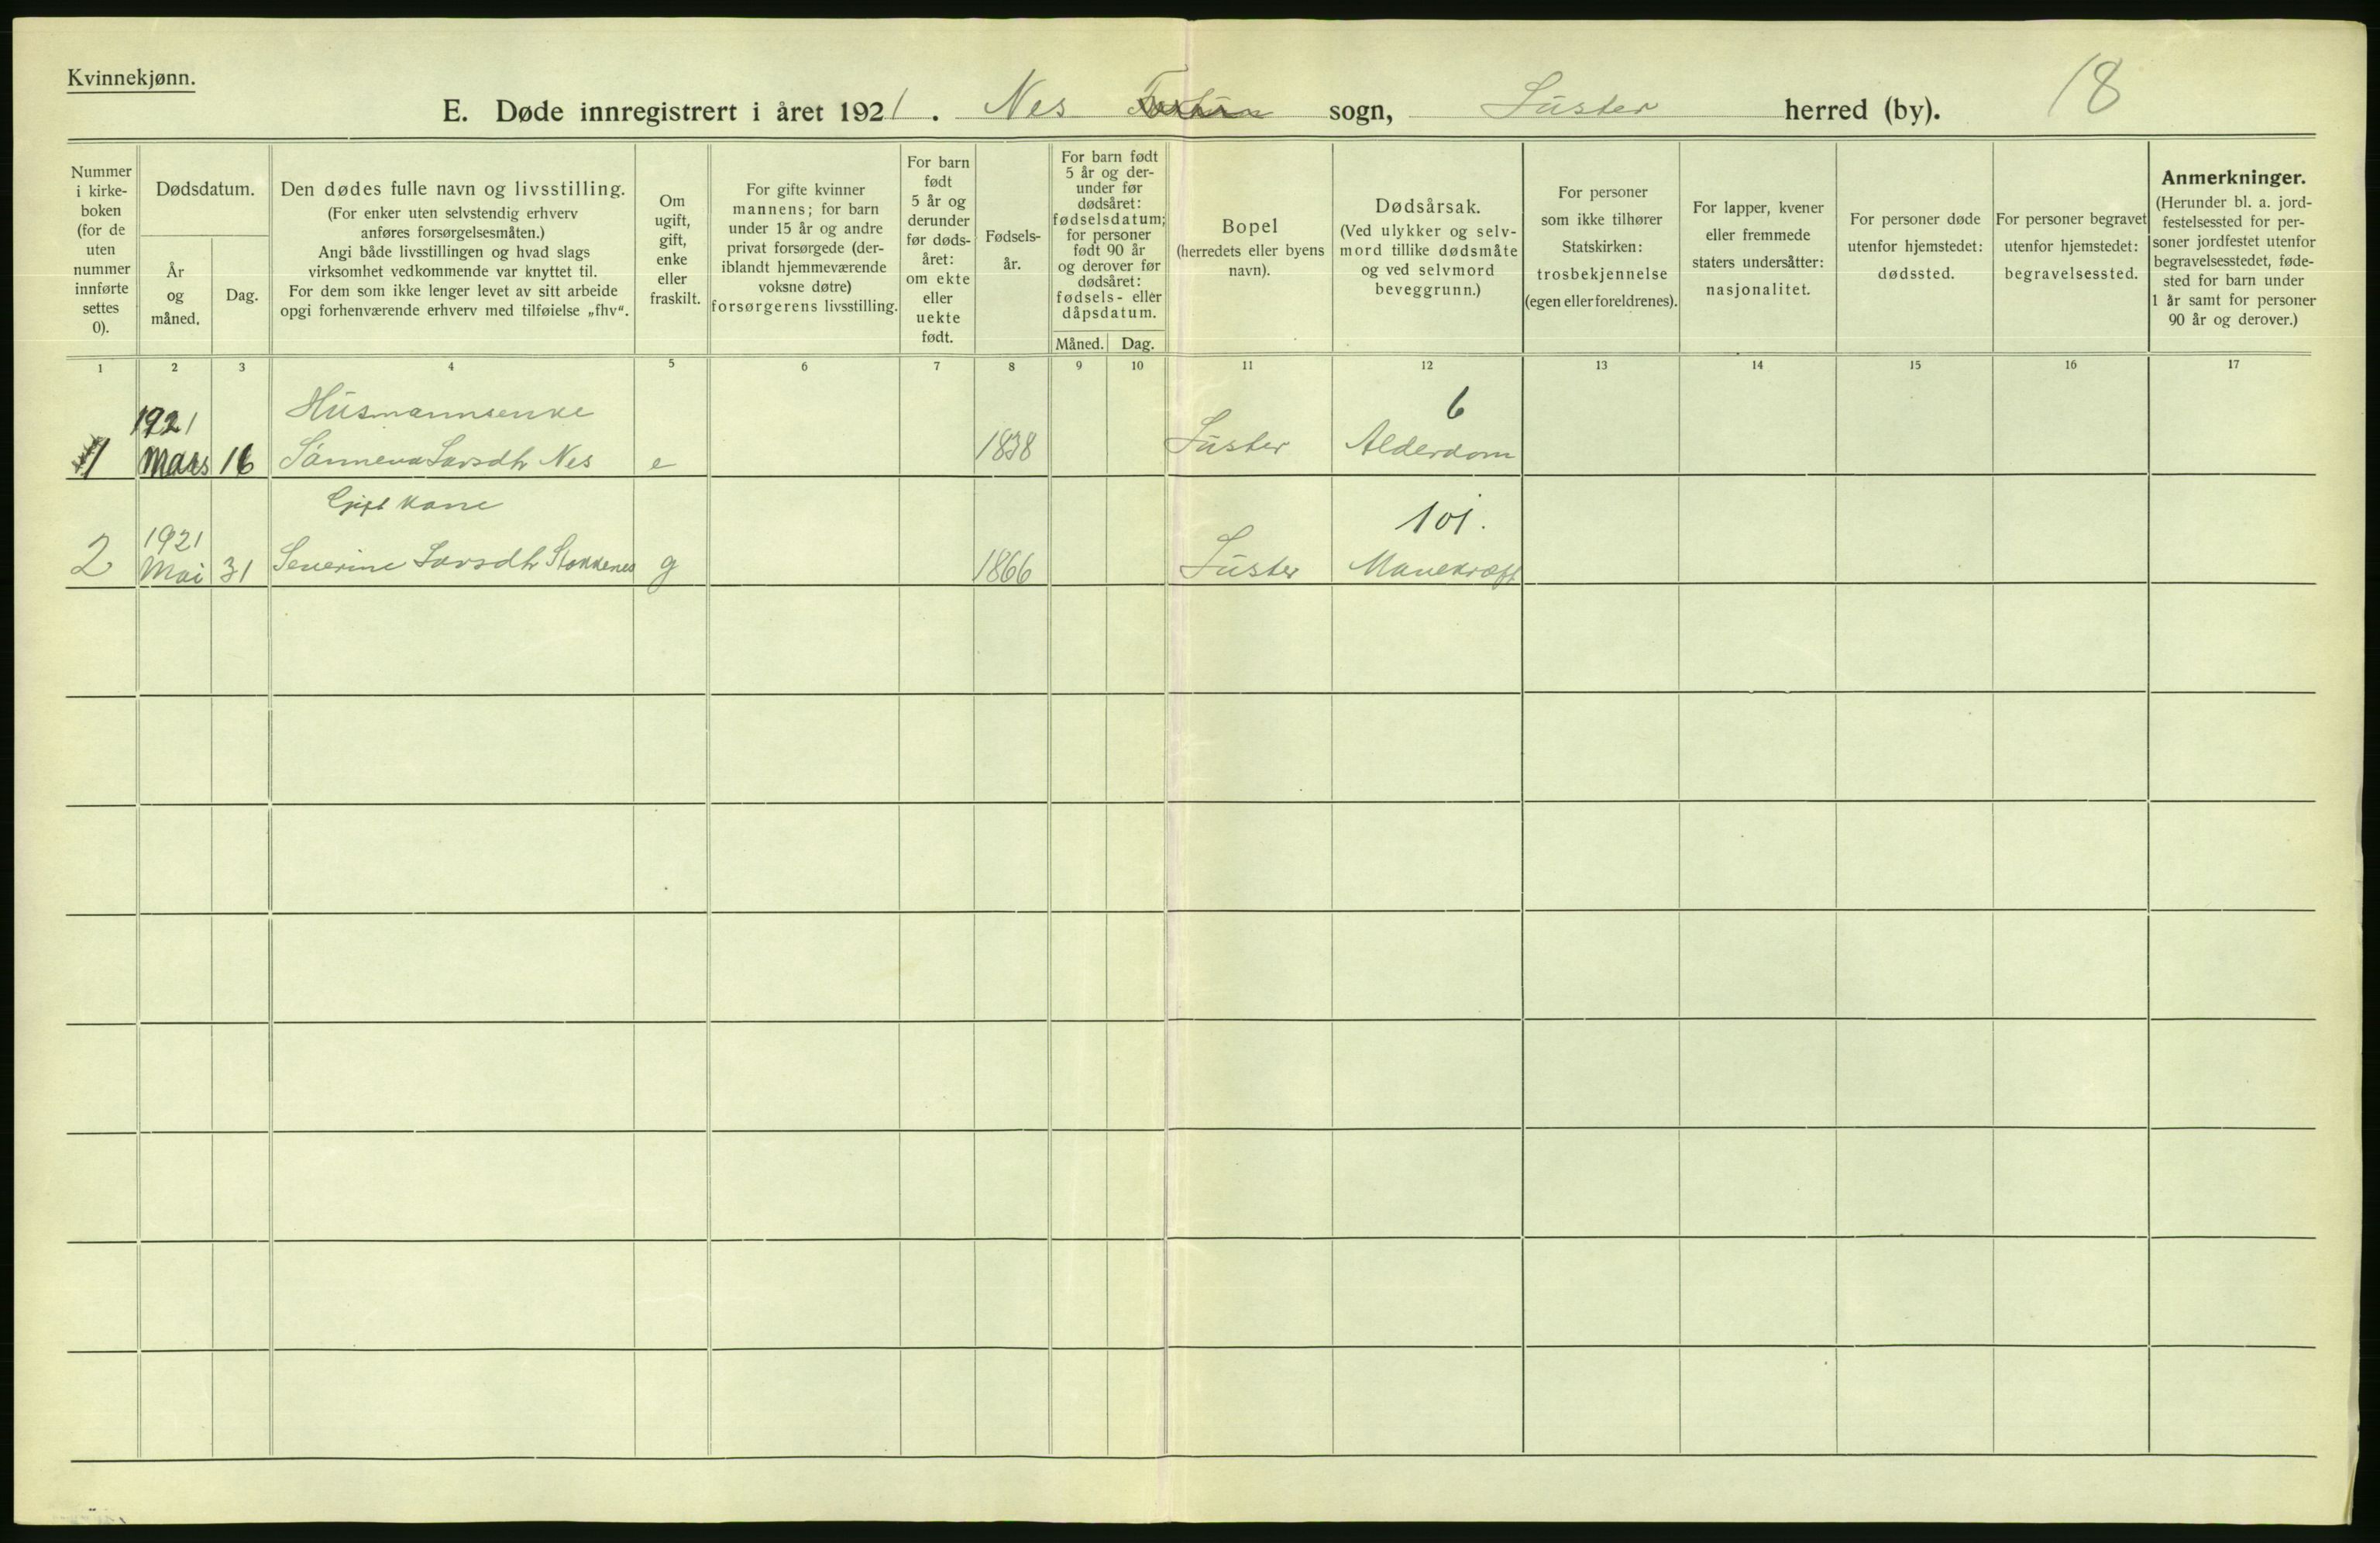 Kvinnekjønn.
18
E. Døde innregistrert i året 1921. Nes sogn, Luster herred (by).
Nummer
i kirke-
boken
(for de
uten
nummer
innførte
settes
0).
Dødsdatum.
År
og
måned.
Dag.
Den dødes fulle navn og livsstilling.
(For enker uten selvstendig erhverv
anføres forsørgelsesmåten.)
Angi både livsstillingen og hvad slags
virksomhet vedkommende var knyttet til.
For dem som ikke lenger levet av sitt arbeide
opgi forhenværende erhverv med tilføielse „fhv“.
Om
ugift,
gift,
enke
eller
fraskilt.
For gifte kvinner
mannens; for barn
under 15 år og andre
privat forsørgede (der-
iblandt hjemmeværende
voksne døtre)
forsørgerens livsstilling.
For barn
født
5 år og
derunder
før døds-
året:
om ekte
eller
uekte
født.
Fødsels-
år.
For barn født
5 år og der-
under før
dødsåret:
fødselsdatum;
for personer
født 90 år
og derover før
dødsåret:
fødsels- eller
dåpsdatum.
Måned. Dag.
Bopel
(herredets eller byens
navn).
Dødsårsak.
(Ved ulykker og selv-
mord tillike dødsmåte
og ved selvmord
beveggrunn.)
For personer
som ikke tilhører
Statskirken:
trosbekjennelse
(egen eller foreldrenes).
For lapper, kvener
eller fremmede
staters undersåtter:
nasjonalitet.
For personer døde
utenfor hjemstedet:
dødssted.
For personer begravet
utenfor hjemstedet:
begravelsessted.
Anmerkninger.
(Herunder bl. a. jord-
festelsessted for per-
soner jordfestet utenfor
begravelsesstedet, føde-
sted for barn under
1 år samt for personer
90 år og derover.)
1 2 3 4 5 6 7 8 9 10 11 12 13 14 15 16 17
1921 Husmannsenke 6
1 Mars 16 Sønneva Larsdtr Nes e 1838 Luster Alderdom
Gift kone 101.
1921
2 Mai 31 Severine Larsdtr Stokkenes g 1866 Luster Mavekræft